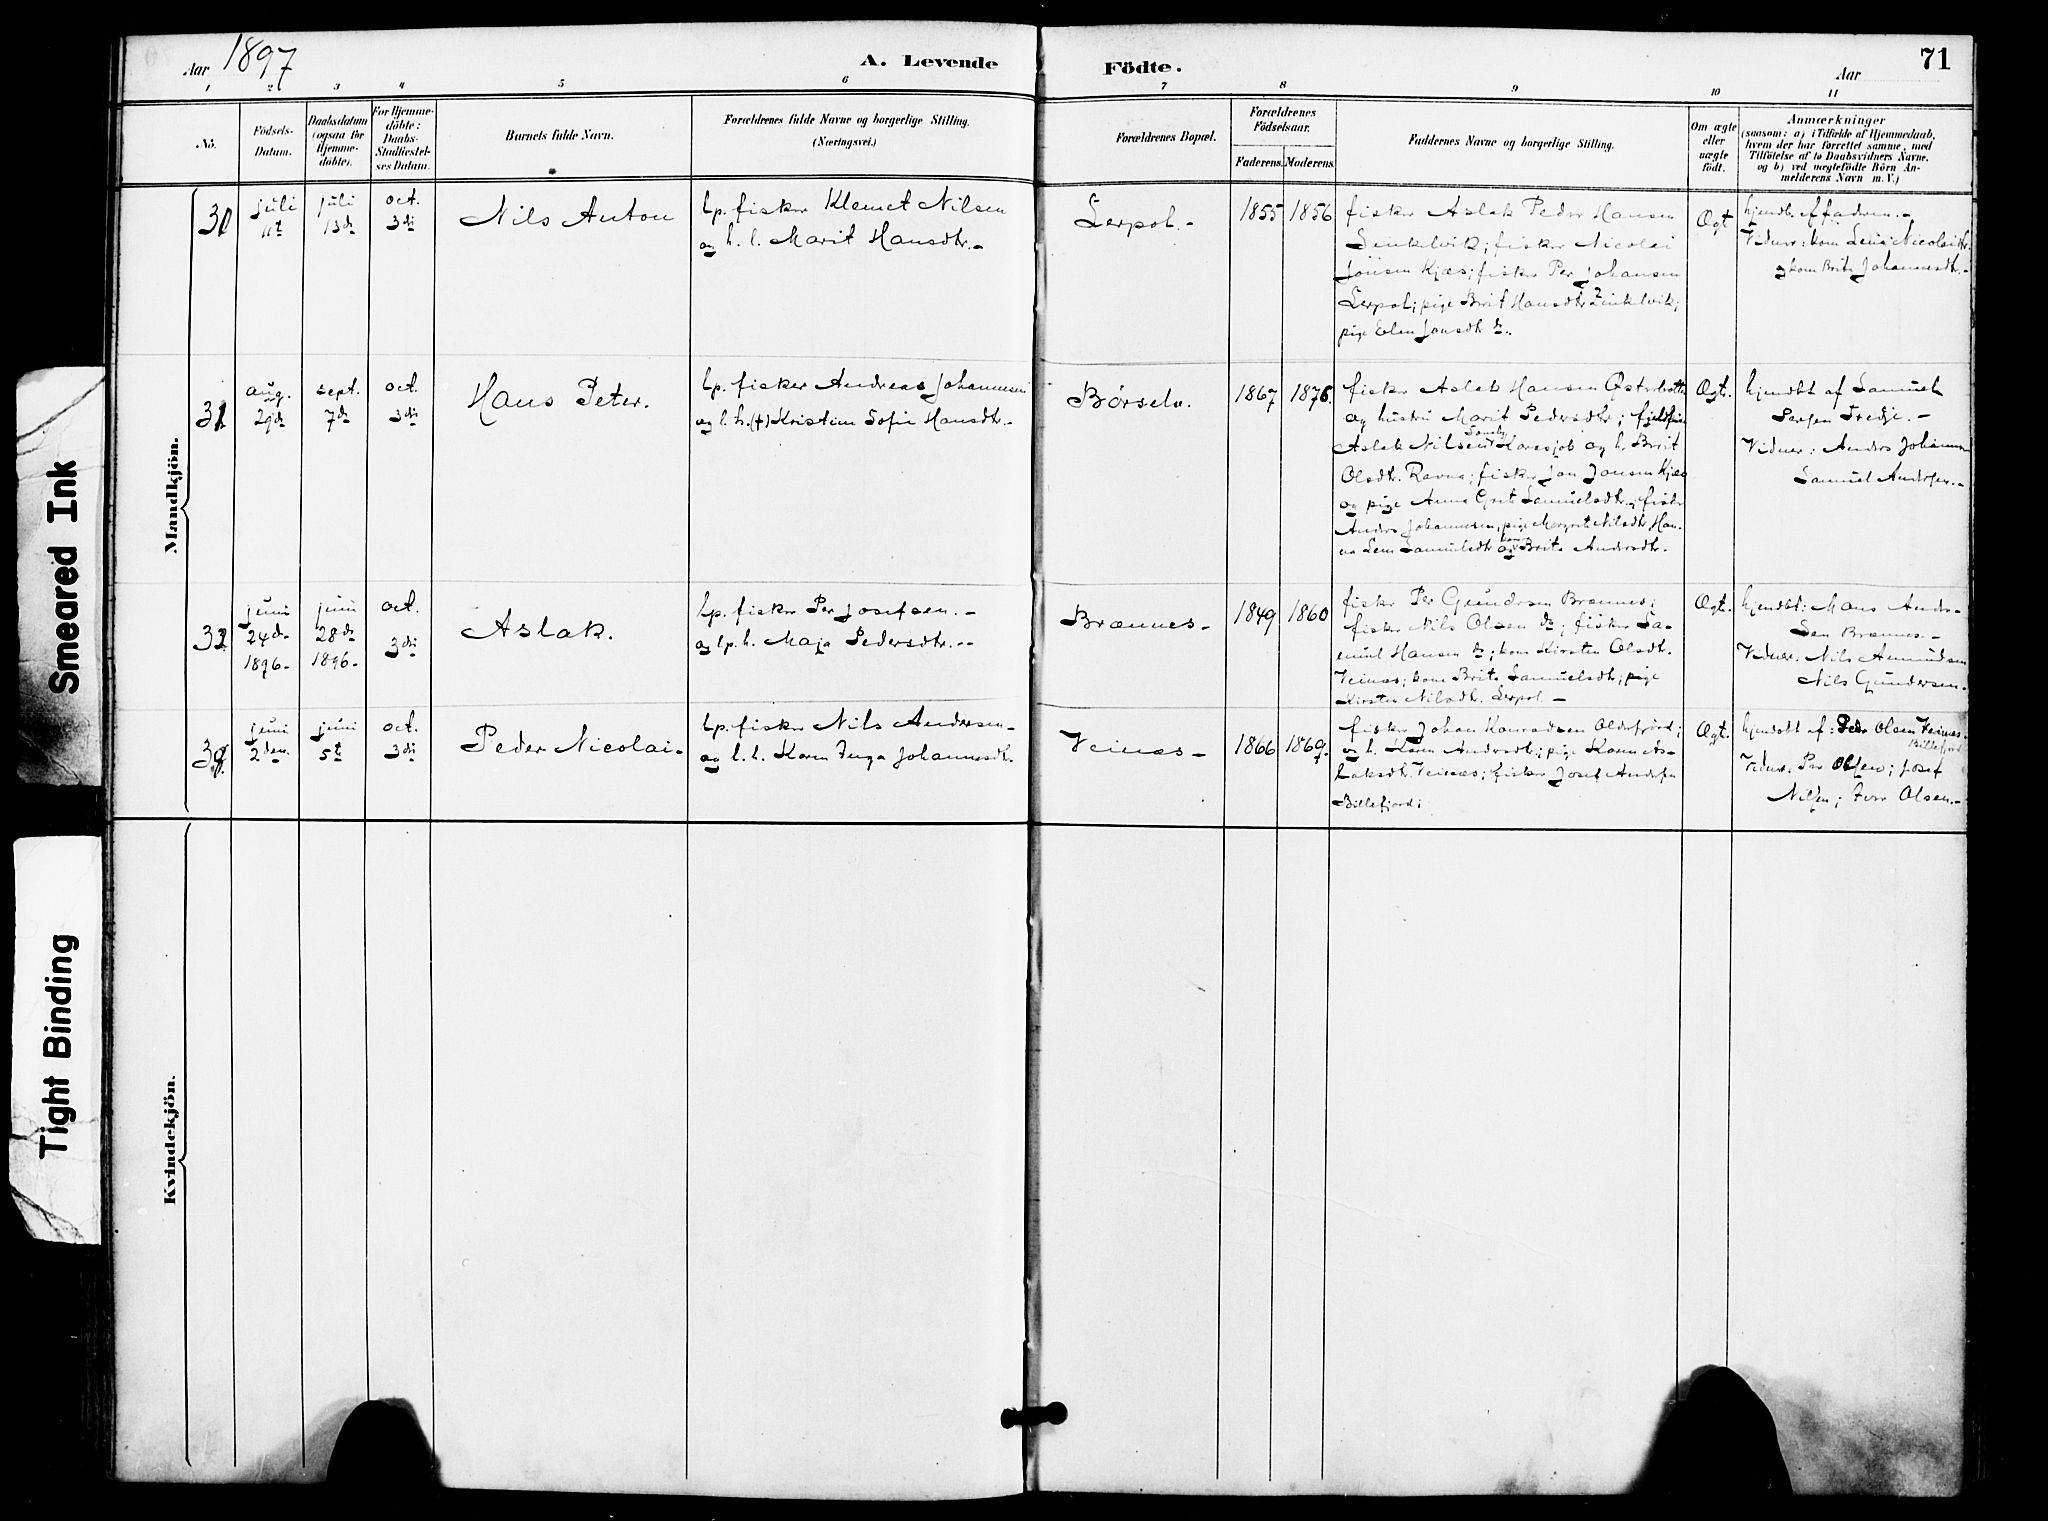 Aar 1897
A. Levende
Födte.
Aar
71
1 2 3 4 5 6 7 8 9 10 11
No.
Födsels-
Datum.
Daabsdatum
(ogsaa for
Hjemme-
döbte).
For Hjemme-
döbte:
Daabs-
Stadfæstel-
ses Datum.
Barnets fulde Navn.
Forældrenes fulde Navne og borgerlige Stilling.
(Næringsvei.)
Forældrenes Bopæl.
Forældrenes
Födselsaar.
Faderens. Moderens.
Faddernes Navne og borgerlige Stilling.
Om ægte
eller
uægte
födt.
Anmærkninger
(saasom: a) i Tilfælde af Hjemmedaab,
hvem der har forrettet samme, med
Tilföielse af to Daabsvidners Navne,
og b) ved uægtefödte Börn An-
melderens Navn m. V.)
Mandkjön.
juli
11te
juli
13de
oct.
3die
Nils Anton
lp. fisker Klemet Nilsen
og h. l. Marit Hansdtr.-
Lerpol.-
1855 1856
fisker Aslak Peder Hansen
fisker Nicolai
Jonsen Kjæs; fisker Per Johansen
Lerpol; pige Brit Hansdtr
pige Elen Jonsdtr do.
Ægt
hjemdb. af fadren.-
Vidner: kone Lena Nicolaidtr.
og kone Brita Johannesdtr.-
aug.
29de
sept.
7de
oct.
3die
Hans Peter.
lp. fisker Andreas Johannesen
og l. h. (+) Kristine Sofie Hansdtr.-
Börselv.
1867 1876.
fisker Aslak Hansen Østerbotten
og hustru Marit Pedersdtr; fjeldfin
Aslak Nilsen Somby Karasjok og h. Berit
Olsdtr. Ravna; fisker Jon Jonsen Kjæs
og pige Anna Grete Samuelsdtr.; fisker
Anders Johannesen, pige Margrete Nilsdtr Han-
na Lena Samuelsdtr og kone Brita Andersdtr.
Ægt.
hjemdbt af Samuel
Vidner: Anders Johannesen
Samuel Andersen.-
juni
24de
1896-
juni
28de
1896-
oct.
3die
Aslak.
lp. fisker Per Josefsen.-
og lp. h. Maja Pedersdtr.--
Brænnes-
1849 1860
fisker Per Gundersen Brænnes;
fisker Nils Olsen do; fisker Sa-
muel Hansen do; kone Kirsten Olsdtr.
Veinæs; kone Brita Samuelsdtr; pige
Kirsten Nilsdtr. Lerpol-
Ægt.
hjemdbt: Mans Ander-
sen Brænnes.-
Vidner: Nils Aanundsen
Nils Gundersen.-
juni
2den
juni
5te
oct.
3die
Peder Nicolai-
lp. fisker Nils Andersen-
og l. h. Karen Inga Johannesdtr.
Veinæs-
1866 1869.
fisker Johan Konradsen Olderfjord;
og h. Karen Andersdtr; pige Karen As-
laksdtr. Veinæs; fisker Josef Andersen
Billefjord;
Ægt.
hjemdbt af: Peder Olsen Veinæs-
Billefjord
Vidner: Per Olsen; Josef
Nilsen; Iver Olsen.-
Kvindekjön.
Smeared Ink
Tight Binding